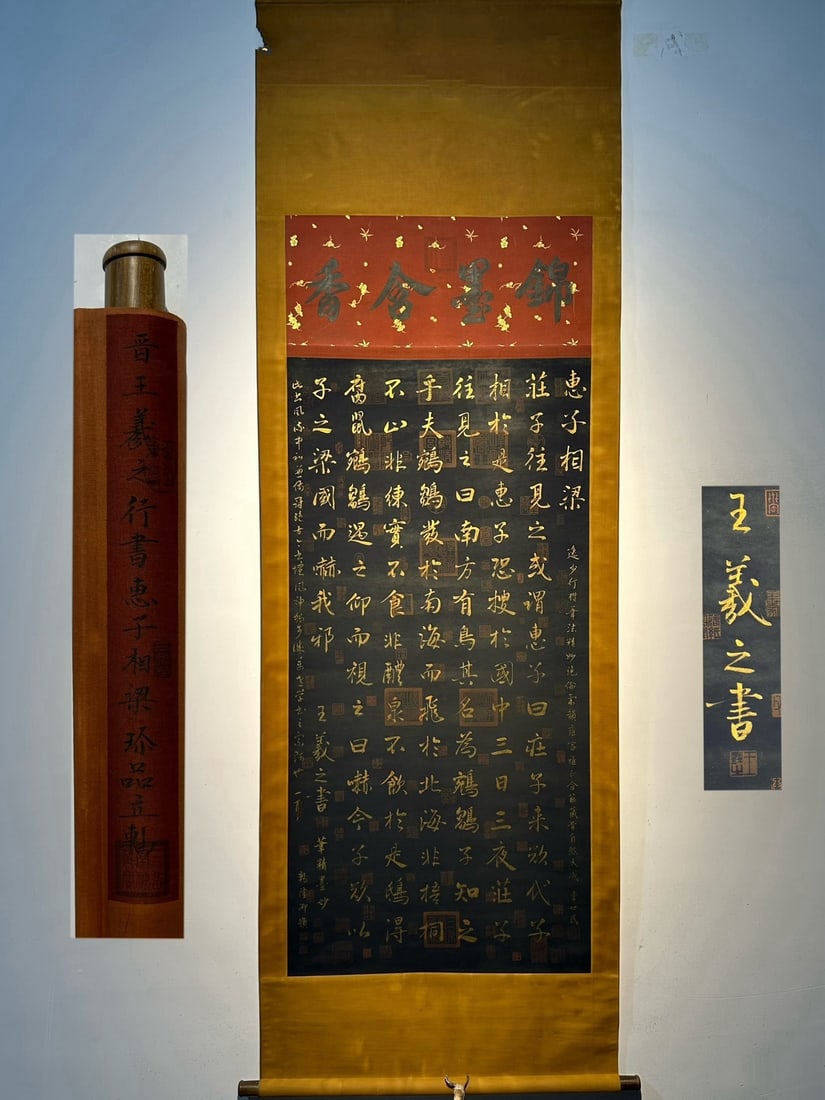 錦墨含香
惠子相梁
莊子往見之或謂惠子曰庄子来欲代子
相於是惠子恐搜於國中三日三夜莊子
往見之曰南方有鳥其名為鵷鶵子知之
乎夫鵷鶵發於南海而飛於北海非梧桐
不止非練實不食非醴泉不飲於是鴟得
腐鼠鵷鶵過之仰而視之曰嚇今子欲以
子之梁國而嚇我邪
王羲之書
筆精墨妙
晋王羲之行書惠子相梁珍品立軸
王羲之書